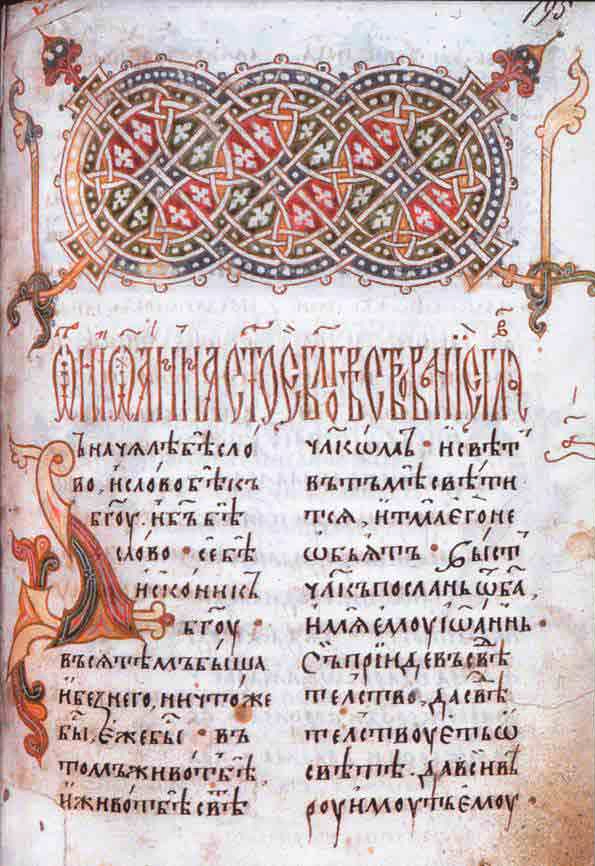 195
Ѿ Иѡанна стое бл҃гѡвѣствованїе гл҃а в҃
Въ начялѣ бѣ сло
во, и слово бѣ къ
бг҃оу. и б҃ъ бѣ
слово • се бѣ
искони къ
бг҃оу •
въся тѣмъ быша
и беꙁ него, ничтоже
бы, еже бы • въ
томъ живѡт бѣ,
и живѡт бѣ свѣ
чл҃кѡмъ • и свѣт
въ тъмѣ свѣти
тся, и тма его не
ѡбьять • Быст
чл҃къ посланъ ѿ б҃а,
имя емоу іѡаннь •
Съ прїиде въ свѣ
телство, да свѣ
телствоуеть ѡ
свѣтѣ. да вси вѣ
роу имоуть емоу •